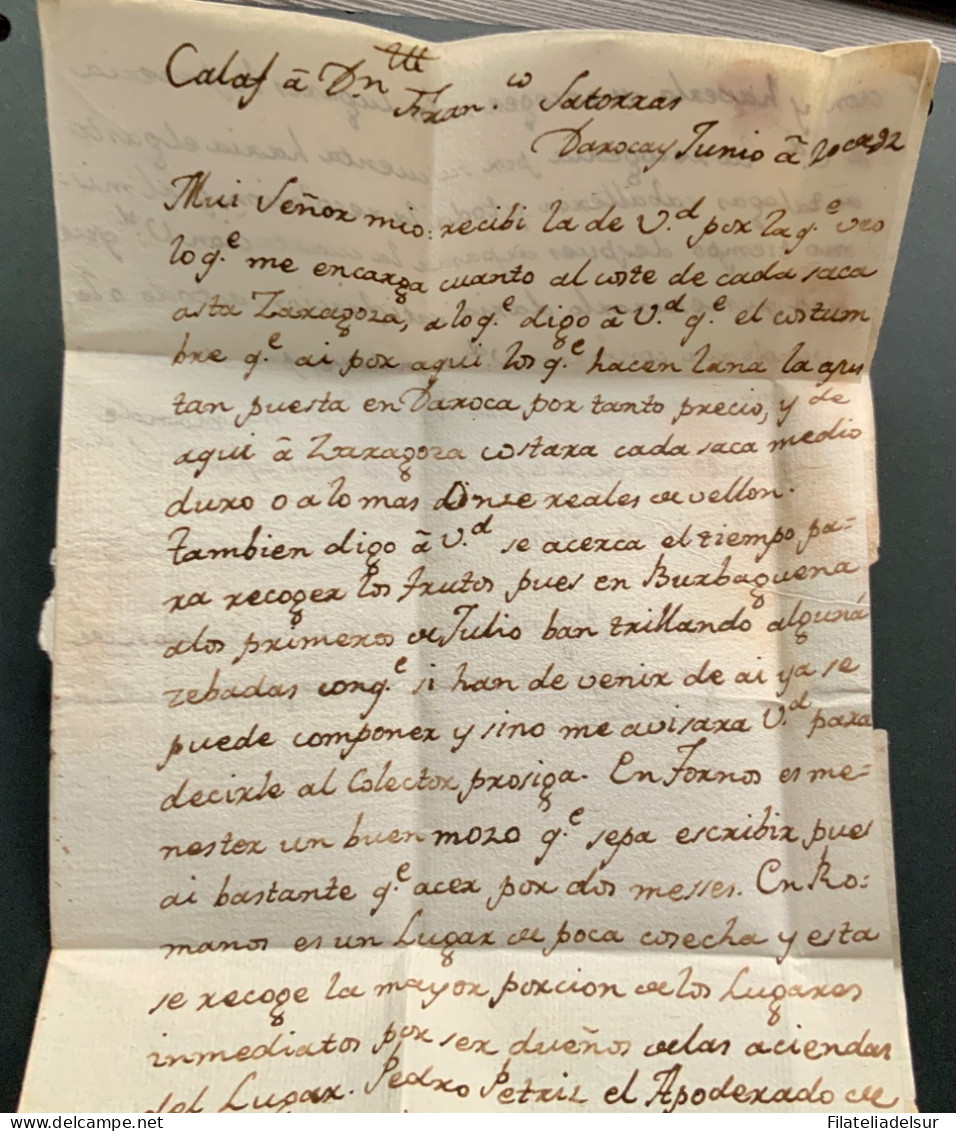 Calaf â Dn
Fran.co Satorras
Daroca y Junio â 20 de 92
Mui Señor mio: recibi la de V.d por la q.e veo
lo q.e me encarga cuanto al coste de cada saca
asta Zaragoza, a lo q.e digo â V.d q.e el costum
bre q.e ai por aqui los q.e hacen lana la ajus
tan puesta en Daroca por tanto precio, y de
aqui â Zaragoza costara cada saca medio
duro o a lo mas Onze reales de vellon.
tambien digo â V.d se acerca el tiempo pa-
ra recoger los frutos pues en Burbaguena
a los primeros de Julio ban trillando alguná
zebadas conq.e si han de venir de ai ya se
puede componer y sino me avisara V.d para
decirle al Colector prosiga. En Fornos es me-
nester un buen mozo q.e sepa escribir pues
ai bastante q.e acer por dos messes. En Ro-
manos es un Lugar de poca cosecha y esta
se recoge la mayor porcion de los Lugares
inmediatos por ser dueños de las aciendas
del Lugar. Pedro Petriz el Apoderado de
Filateliadelsur